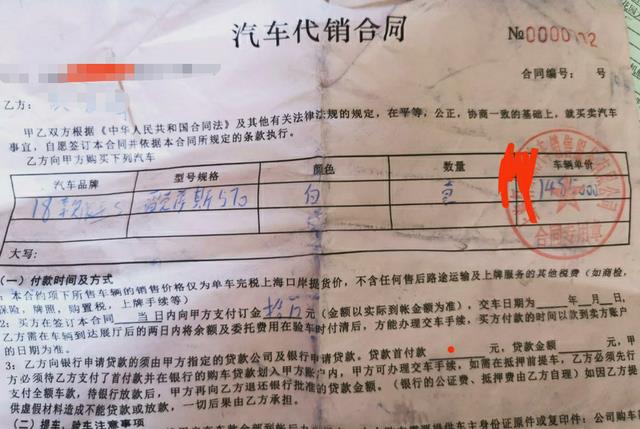 汽车代销合同
№000002
合同编号： 号
乙方：
甲乙双方根据《中华人民共和国合同法》及其他有关法律法规的规定，在平等，公正，协商一致的基础上，就买卖汽车
事宜，自愿签订本合同并依据本合同所规定的条款执行。
乙方向甲方购买下列汽车
汽车品牌 型号规格 颜色 数量 车辆单价
18款 雷克萨斯570 白 壹
大写：
合同专用章
(一) 付款时间及方式
：本合约项下所售车辆的销售价格仅为单车完税上海口岸提货价，不含任何售后路途运输及上牌服务的其他税费（如商检，
保险，牌照，购置税，上牌手续等）
2：买方在签订本合同 当 日内向甲方支付订金 拾万 元（金额以实际到帐金额为准）。交车日期为 年 月 日，
乙方需在车辆到达展厅后的两日内将余额及委托费用在验车时付清后，方能办理交车手续，买方付款的时间以款到卖方账户
的日期为准。
3：乙方向银行申请贷款的须由甲方指定的贷款公司及银行申请贷款。贷款首付款 元，贷款金额 元，
方必须待乙方支付了首付款并在银行的购车贷款划入甲方账户内，甲方可办理交车手续，如需在抵押前提车，乙方必须先行
支付全额车款，待银行放款后，甲方再向乙方退还银行批准的贷款金额。（银行的公证费、抵押费由乙方自理）如因乙方提
供虚假材料造成不能贷款或放款，一切后果由乙方承担。
(二) 提车、验车注意事项